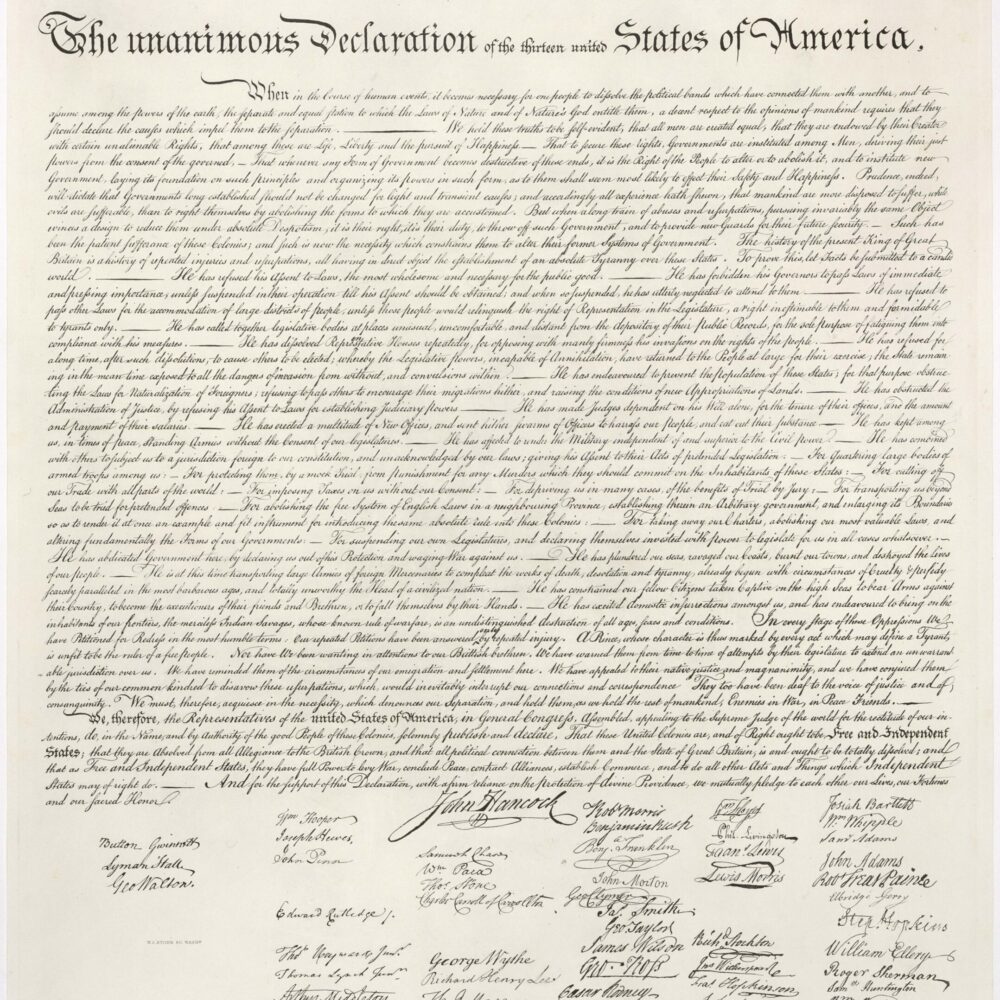 The unanimous Declaration of the thirteen united States of America.
When in the Course of human events, it becomes necessary for one people to dissolve the political bands which have connected them with another, and to
assume among the powers of the earth, the separate and equal station to which the Laws of Nature and of Nature's God entitle them, a decent respect to the opinions of mankind requires that they
should declare the causes which impel them to the separation. ——— We hold these truths to be self-evident, that all men are created equal, that they are endowed by their Creator
with certain unalienable Rights, that among these are Life, Liberty and the pursuit of Happiness.— That to secure these rights, Governments are instituted among Men, deriving their just
powers from the consent of the governed,— That whenever any Form of Government becomes destructive of these ends, it is the Right of the People to alter or to abolish it, and to institute new
Government, laying its foundation on such principles and organizing its powers in such form, as to them shall seem most likely to effect their Safety and Happiness. Prudence, indeed,
will dictate that Governments long established should not be changed for light and transient causes; and accordingly all experience hath shewn, that mankind are more disposed to suffer, while
evils are sufferable, than to right themselves by abolishing the forms to which they are accustomed. But when a long train of abuses and usurpations, pursuing invariably the same Object
evinces a design to reduce them under absolute Despotism, it is their right, it is their duty, to throw off such Government, and to provide new Guards for their future security.— Such has
been the patient sufferance of these Colonies; and such is now the necessity which constrains them to alter their former Systems of Government. The history of the present King of Great
Britain is a history of repeated injuries and usurpations, all having in direct object the establishment of an absolute Tyranny over these States. To prove this, let Facts be submitted to a candid
world. ——— He has refused his Assent to Laws, the most wholesome and necessary for the public good. ——— He has forbidden his Governors to pass Laws of immediate
and pressing importance, unless suspended in their operation till his Assent should be obtained; and when so suspended, he has utterly neglected to attend to them ——— He has refused to
pass other Laws for the accommodation of large districts of people, unless those people would relinquish the right of Representation in the Legislature, a right inestimable to them and formidable
to tyrants only. ——— He has called together legislative bodies at places unusual, uncomfortable, and distant from the depository of their public Records, for the sole purpose of fatiguing them into
compliance with his measures. ——— He has dissolved Representative Houses repeatedly, for opposing with manly firmness his invasions on the rights of the people. ——— He has refused for
a long time, after such dissolutions, to cause others to be elected; whereby the Legislative powers, incapable of Annihilation, have returned to the People at large for their exercise; the State remain
ing in the mean time exposed to all the dangers of invasion from without, and convulsions within. ——— He has endeavoured to prevent the population of these States; for that purpose obstruc
ting the Laws for Naturalization of Foreigners; refusing to pass others to encourage their migrations hither, and raising the conditions of new Appropriations of Lands. ——— He has obstructed the
Administration of Justice, by refusing his Assent to Laws for establishing Judiciary powers ——— He has made Judges dependent on his Will alone, for the tenure of their offices, and the amount
and payment of their salaries. ——— He has erected a multitude of New Offices, and sent hither swarms of Officers to harrass our people, and eat out their substance ——— He has kept among
us, in times of peace, Standing Armies without the Consent of our legislatures. ——— He has affected to render the Military independent of and superior to the Civil power. ——— He has combined
with others to subject us to a jurisdiction foreign to our constitution, and unacknowledged by our laws; giving his Assent to their Acts of pretended Legislation:— For Quartering large bodies of
armed troops among us:— For protecting them, by a mock Trial, from punishment for any Murders which they should commit on the Inhabitants of these States:— For cutting off
our Trade with all parts of the world:— For imposing Taxes on us without our Consent:— For depriving us in many cases, of the benefits of Trial by Jury:— For transporting us beyond
Seas to be tried for pretended offences — For abolishing the free System of English Laws in a neighbouring Province, establishing therein an Arbitrary government, and enlarging its Boundaries
so as to render it at once an example and fit instrument for introducing the same absolute rule into these Colonies:— For taking away our Charters, abolishing our most valuable Laws, and
altering fundamentally the Forms of our Governments:— For suspending our own Legislatures, and declaring themselves invested with power to legislate for us in all cases whatsoever.—
He has abdicated Government here, by declaring us out of his Protection and waging War against us.— He has plundered our seas, ravaged our Coasts, burnt our towns, and destroyed the lives
of our people. — He is at this time transporting large Armies of foreign Mercenaries to compleat the works of death, desolation and tyranny, already begun with circumstances of Cruelty & perfidy
scarcely paralleled in the most barbarous ages, and totally unworthy the Head of a civilized nation. — He has constrained our fellow Citizens taken Captive on the high Seas to bear Arms against
their Country, to become the executioners of their friends and Brethren, or to fall themselves by their Hands. — He has excited domestic insurrections amongst us, and has endeavoured to bring on the
inhabitants of our frontiers, the merciless Indian Savages, whose known rule of warfare, is an undistinguished destruction of all ages, sexes and conditions. In every stage of these Oppressions We
have Petitioned for Redress in the most humble terms: Our repeated Petitions have been answered only by repeated injury. A Prince, whose character is thus marked by every act which may define a Tyrant,
is unfit to be the ruler of a free people. Nor have We been wanting in attentions to our Brittish brethren. We have warned them from time to time of attempts by their legislature to extend an unwarrant
able jurisdiction over us. We have reminded them of the circumstances of our emigration and settlement here. We have appealed to their native justice and magnanimity, and we have conjured them
by the ties of our common kindred to disavow these usurpations, which, would inevitably interrupt our connections and correspondence They too have been deaf to the voice of justice and of
consanguinity. We must, therefore, acquiesce in the necessity, which denounces our Separation, and hold them, as we hold the rest of mankind, Enemies in War, in Peace Friends. ———
We, therefore, the Representatives of the united States of America, in General Congress, Assembled, appealing to the Supreme Judge of the world for the rectitude of our in-
tentions, do, in the Name, and by Authority of the good People of these Colonies, solemnly publish and declare, That these United Colonies are, and of Right ought to be Free and Independent
States; that they are Absolved from all Allegiance to the British Crown, and that all political connection between them and the State of Great Britain, is and ought to be totally dissolved; and
that as Free and Independent States, they have full Power to levy War, conclude Peace, contract Alliances, establish Commerce, and to do all other Acts and Things which Independent
States may of right do. — And for the support of this Declaration, with a firm reliance on the protection of divine Providence, we mutually pledge to each other our Lives, our Fortunes
and our sacred Honor.
Button Gwinnett
Lyman Hall
Geo Walton.
W. J. STONE SC WASHN
Wm Hooper
Joseph Hewes,
John Penn
Edward Rutledge /.
Thos Heyward Junr.
Thomas Lynch Junr.
Arthur Middleton
John Hancock
Samuel Chase
Wm Paca
Thos Stone
Charles Carroll of Carrollton
George Wythe
Richard Henry Lee
Th Jefferson
Robt Morris
Benjamin Rush
Benj. Franklin
John Morton
Geo Clymer
Jas. Smith
Geo Taylor
James Wilson
Geo. Ross
Caesar Rodney
Wm Floyd
Phil. Livingston
Frans. Lewis
Lewis Morris
Richd. Stockton
Jno Witherspoon
Fras. Hopkinson
Josiah Bartlett
Wm. Whipple
Saml Adams
John Adams
Robt Treat Paine
Elbridge Gerry
Step. Hopkins
William Ellery
Roger Sherman
Saml. Huntington